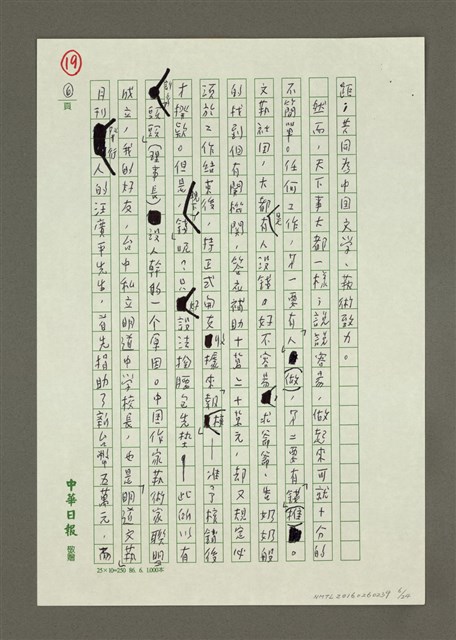 19
6
頁
距;共同為中国文学、芸術致力。
然而,天下事大都一樣;說說容易,做起來可就十分的
不簡單。任何工作,第一要有人做,第二要有錢推。
文芸社团,大都是有人沒錢。好不容易求爺爺、告奶奶般
的找到個有関机関,答应補助十萬二十萬元,却又規定必
須於工作結束後,持正式向友收據來報
准了核銷後
才撥款。但是,錢呢?只好設法掏腰包先墊——此所以有
頭頭(理事長)沒人幹的一个原因。中国作家芸術家聯盟
成立,我的好友,台中私立明道中学校長,也是「明道文芸」
月刊發行人的汪廣平先生,首先捐助了新台幣五萬元,而
中華日报
25×10=250 86. 6. 1000本
NMTL20160260039 6/20